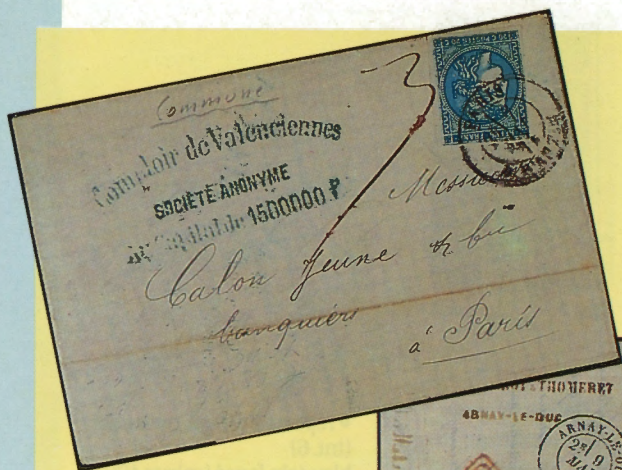 Commune
3
Comptoir de Valenciennes
SOCIÉTÉ ANONYME
au Capital de 1500000 F
Messieurs
Calon Jeune & Cie
banquiers
à Paris
THOMERET
ARNAY-LE-DUC
ARNAY-LE-D
2E
9
MA